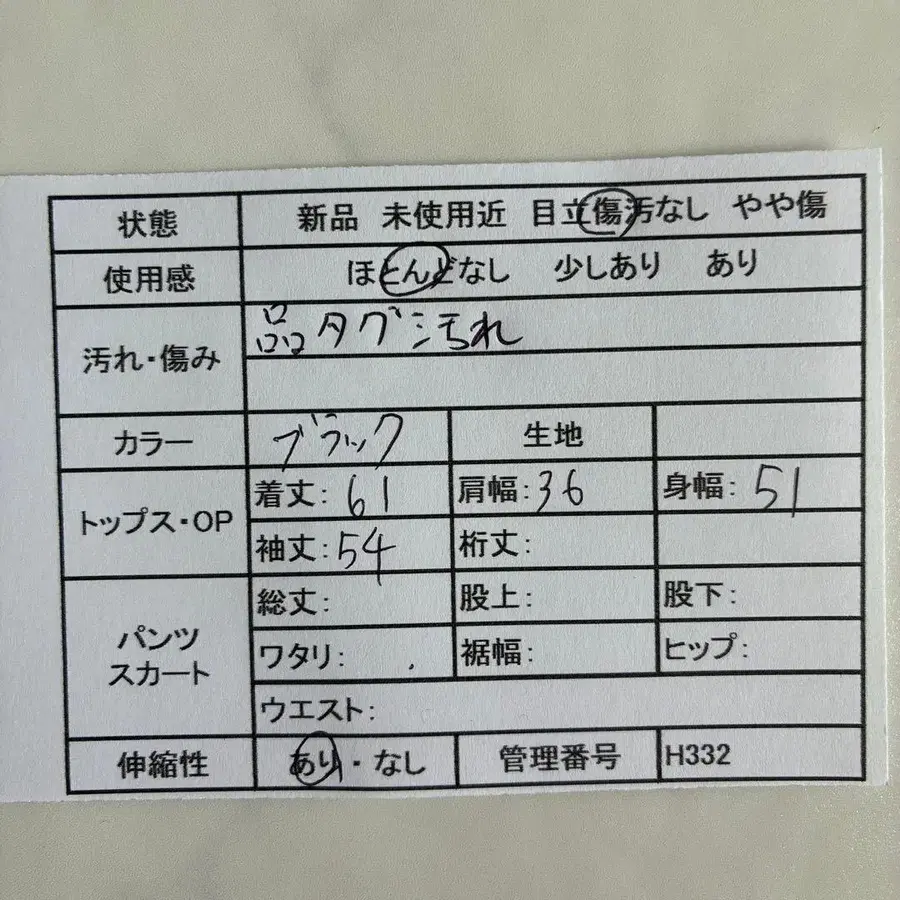 状態 新品 未使用近 目立傷汚なし やや傷
使用感 ほとんどなし 少しあり あり
汚れ・傷み 品タグ汚れ
カラー ブラック 生地
トップス・OP 着丈:61 肩幅:36 身幅:51
袖丈:54 裄丈:
パンツ スカート 総丈: 股上: 股下:
ワタリ: 裾幅: ヒップ:
ウエスト:
伸縮性 あり・なし 管理番号 H332